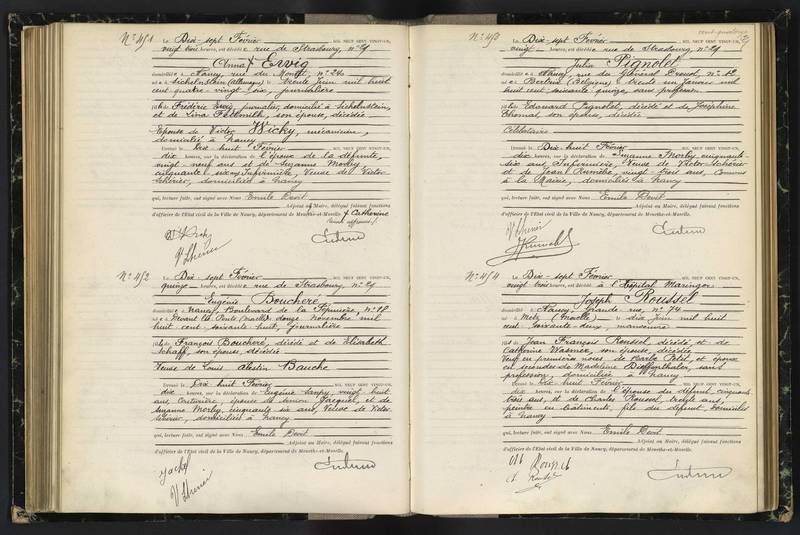 N° 451 Le Dix-sept Février MIL NEUF CENT VINGT-UN,
vingt trois heures, est décédée rue de Strasbourg, n° 29
Anna Erwig
domiciliée à Nancy, rue du Montet, n° 240
née à (Allemagne) le trente Juin mil huit
cent quatre-vingt six, journalière
fille de Frédéric Erwig, journalier, domicilié à
et de Lina son épouse, décédée
Epouse de Victor Wicky, mécanicien,
domicilié à Nancy
Dressé le Dix huit Février
dix heures, sur la déclaration de l'époux de la défunte,
vingt neuf ans et de Suzanne Morley
cinquante six ans Infirmière, Veuve de Victor
domiciliés à Nancy
qui, lecture faite, ont signé avec Nous Emile Devit
Adjoint au Maire, délégué faisant fonctions
d'officier de l'État civil de la Ville de Nancy, département de Meurthe-et-Moselle. Catherine
N° 452 Le Dix-sept Février MIL NEUF CENT VINGT-UN,
quinze heures, est décédée rue de Strasbourg, n° 29
Eugénie Boucheré
domiciliée à Nancy, Boulevard de la Pépinière, n° 18
née à Devant les Ponts (Moselle) douze Novembre mil
huit cent soixante huit, journalière
fille de François Boucheré, décédé et de Elisabeth
Schaff, son épouse, décédée
Veuve de Louis Bauche
Dressé le Dix huit Février
dix heures, sur la déclaration de Eugénie vingt huit
ans, épouse de Jacquel, et de
Suzanne Morley, cinquante six ans, Veuve de Victor
domiciliées à Nancy
qui, lecture faite, ont signé avec Nous Emile Devit
Adjoint au Maire, délégué faisant fonctions
d'officier de l'État civil de la Ville de Nancy, département de Meurthe-et-Moselle.
N° 453 Le Dix-sept Février MIL NEUF CENT VINGT-UN,
vingt heures, est décédée rue de Strasbourg, n° 29
Julia Pignolet
domiciliée à Nancy, rue du Général Drouot, n° 12
née à (Belgique) trente un Janvier mil
huit cent soixante quinze, sans profession
fille de Edouard Pignolet, décédé et de Joséphine
Thomas, son épouse, décédée
Célibataire
Dressé le Dix-huit Février
dix heures, sur la déclaration de Suzanne Morley cinquante-
six ans, Infirmière, Veuve de Victor
et de Jean vingt-trois ans, Commis
à la Mairie, domiciliés à Nancy
qui, lecture faite, ont signé avec Nous Emile Devit
Adjoint au Maire, délégué faisant fonctions
d'officier de l'État civil de la Ville de Nancy, département de Meurthe-et-Moselle.
N° 454 Le Dix-sept Février MIL NEUF CENT VINGT-UN,
vingt trois heures, est décédé à l'Hôpital Maringer
Joseph Roussel
domicilié à Nancy, Grande rue, n° 74
né à Metz (Moselle) le dix Juin mil huit
cent soixante deux, manoeuvre
fils de Jean François Roussel décédé et de
Catherine Wasmer, son épouse, décédée
Veuf en premières noces de Barbe Petit, et époux
en secondes de Madeleine Dieffenthaler, sans
profession, domiciliée à Nancy
Dressé le Dix huit Février
dix heures, sur la déclaration de l'Epouse du défunt cinquante
trois ans, et de Charles Roussel, trente ans,
peintre en bâtiments, fils du défunt, domiciliés
à Nancy
qui, lecture faite, ont signé avec Nous Emile Devit
Adjoint au Maire, délégué faisant fonctions
d'officier de l'État civil de la Ville de Nancy, département de Meurthe-et-Moselle.